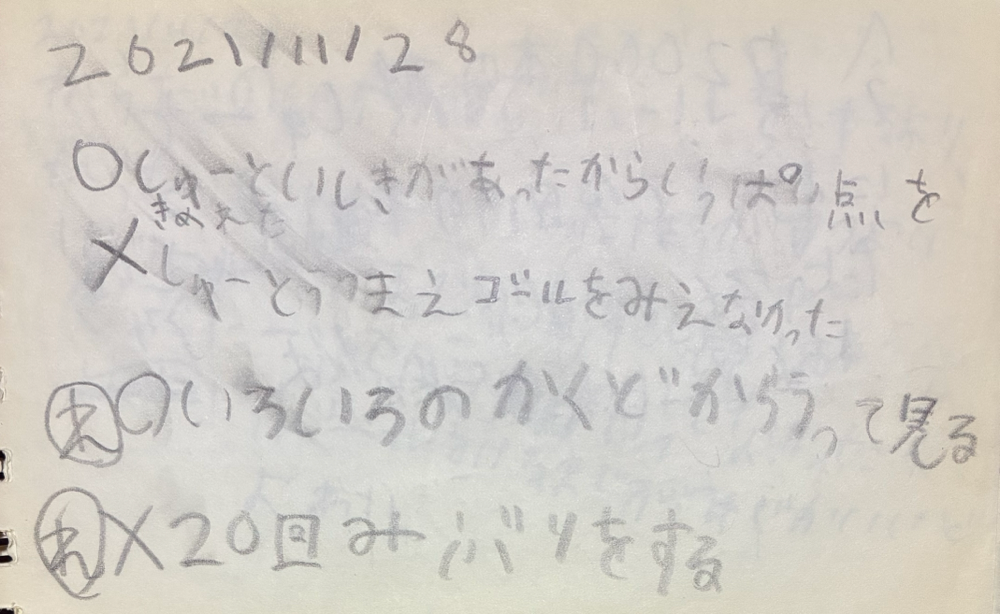 2021/11/28
〇しゅーといしきがあったからいっぱい点を
きめえた
×しゅーとうつまえゴールをみえなかった
㋹〇いろいろのかくどからうって見る
㋹×20回みぶりをする